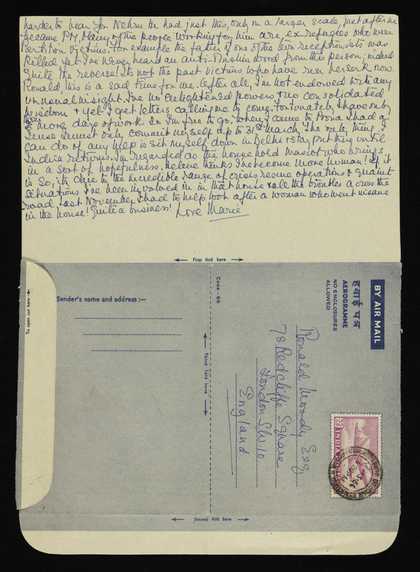 harder to bear for Nehru. He had just this, only on a larger scale just after he
became PM. Many of the people working for him are, ex-refugees who were
Partition Victims. For example the father of one of the two receptionists was
killed yet I've never heard an anti-Muslim word from this person, indeed
quite the reverse. It's not the past victims who have run berserk now.
Ronald this is a sad time for me, after all, I'm not endowed with any
unusual insight. I've no enlightened powers, no consolidated
wisdom & yet I get letters asking me to come, fortunately I have only
more days of work. I'm free to go, when I came to I had a
sense I must only commit myself up to 31st March. The only thing I
can do if any help is sit myself down in Delhi & stay put, until
Indira returns. I'm regarded as the household mascot who brings
in a sort of hopefulness, believe me, no one woman! If it
is so, it's due to the incredible range of crisis rescue operations & quaint
situations I've been involved in in that house & all the troubles across the
road. Last November I had to help look after a woman who went insane
in the house! Quite a business! Love Marie
First fold here
To open cut here
Sender's name and address :—
Code-69
Third fold here
BY AIR MAIL
हवाई पत्र
AEROGRAMME
NO ENCLOSURES
ALLOWED
Ronald Moody Esq,
78 Redcliffe Square
London SW10
England
INDIA
Second fold here